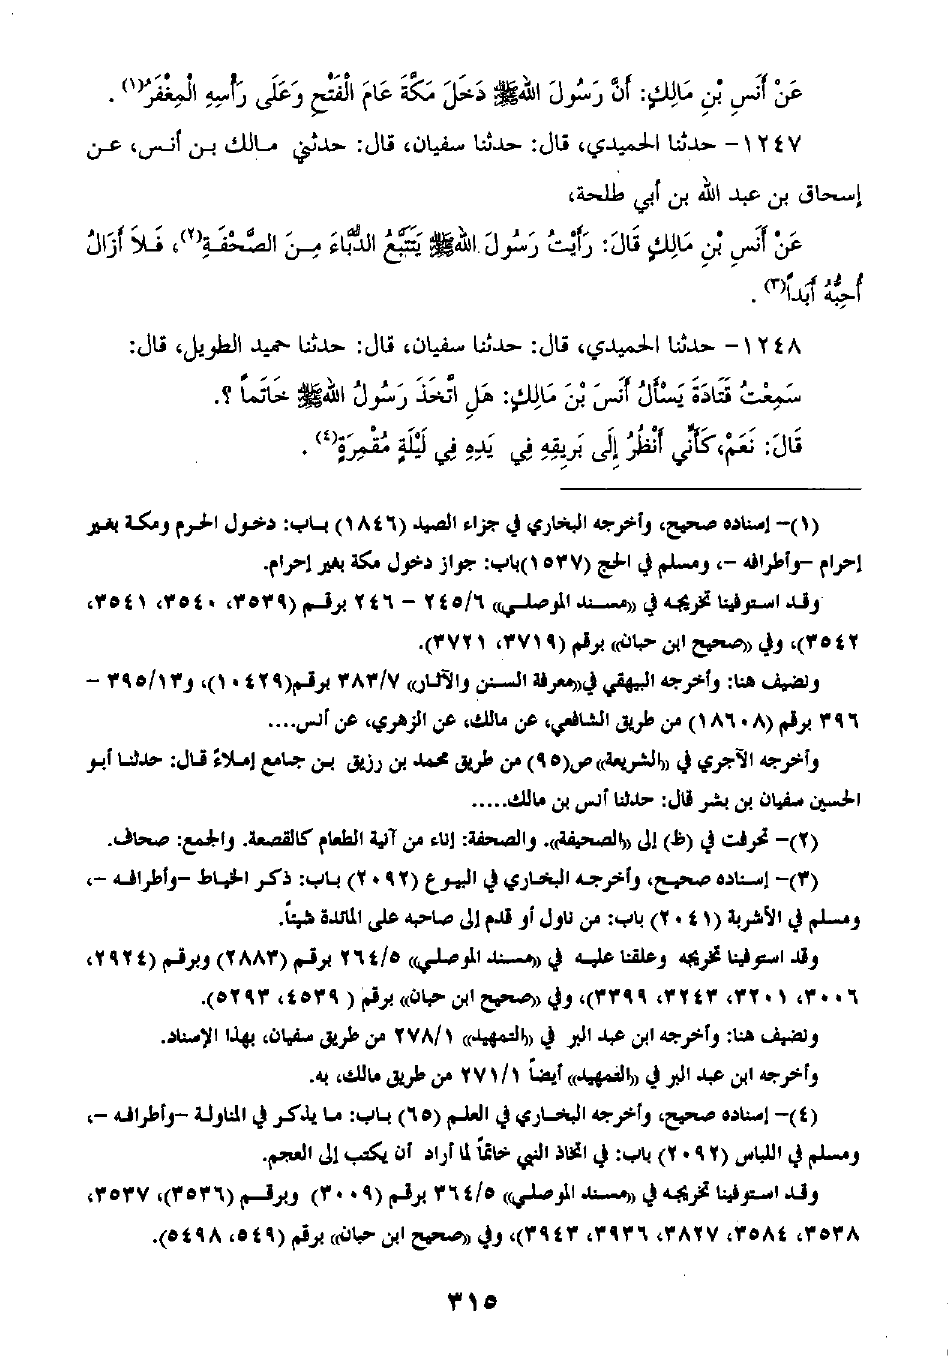 عَنْ أَنَسِ بْنِ مَالِكٍ: أَنَّ رَسُولَ اللهِ ﷺ دَخَلَ مَكَّةَ عَامَ الْفَتْحِ وَعَلَى رَأْسِهِ الْمِغْفَرُ(١) .
١٢٤٧- حدثنا الحميدي، قال: حدثنا سفيان، قال: حدثني مالك بن أنس، عن
إسحاق بن عبد الله بن أبي طلحة،
عَنْ أَنَسِ بْنِ مَالِكٍ قَالَ: رَأَيْتُ رَسُولَ اللهِ ﷺ يَتَتَبَّعُ الدُّبَّاءَ مِنَ الصَّحْفَةِ(٢)، فَلاَ أَزَالُ
أُحِبُّهُ أَبَداً(٣) .
١٢٤٨- حدثنا الحميدي، قال: حدثنا سفيان، قال: حدثنا حميد الطويل، قال:
سَمِعْتُ قَتَادَةَ يَسْأَلُ أَنَسَ بْنَ مَالِكٍ: هَلِ اتَّخَذَ رَسُولُ اللهِ ﷺ خَاتَماً ؟.
قَالَ: نَعَمْ، كَأَنِّي أَنْظُرُ إِلَى بَرِيقِهِ فِي يَدِهِ فِي لَيْلَةٍ مُقْمِرَةٍ(٤) .
(١)- إسناده صحيح، وأخرجه البخاري في جزاء الصيد (١٨٤٦) باب: دخول الحرم ومكة بغير
إحرام -وأطرافه -، ومسلم في الحج (١٥٣٧)باب: جواز دخول مكة بغير إحرام.
وقد استوفينا تخريجه في «مسند الموصلي» ٢٤٥/٦ - ٢٤٦ برقم (٣٥٣٩، ٣٥٤٠، ٣٥٤١،
٣٥٤٢)، وفي «صحيح ابن حبان» برقم (٣٧١٩، ٣٧٢١).
ونضيف هنا: وأخرجه البيهقي في«معرفة السنن والآثار» ٣٨٣/٧ برقم(١٠٤٢٩)، و٣٩٥/١٣ -
٣٩٦ برقم (١٨٦٠٨) من طريق الشافعي، عن مالك، عن الزهري، عن أنس....
وأخرجه الآجري في «الشريعة» ص(٩٥) من طريق محمد بن رزيق بن جامع إملاءً قال: حدثنا أبو
الحسين سفيان بن بشر قال: حدثنا أنس بن مالك.....
(٢)- تحرفت في (ظ) إلى «الصحيفة». والصحفة: إناء من آنية الطعام كالقصعة. والجمع: صحاف.
(٣)- إسناده صحيح، وأخرجه البخاري في البيوع (٢٠٩٢) باب: ذكر الخياط -وأطرافه -،
ومسلم في الأشربة (٢٠٤١) باب: من ناول أو قدم إلى صاحبه على المائدة شيئاً.
وقد استوفينا تخريجه وعلقنا عليه في «مسند الموصلي» ٢٦٤/٥ برقم (٢٨٨٣) وبرقم (٢٩٢٤،
٣٠٠٦، ٣٢٠١، ٣٢٤٣، ٣٣٩٩)، وفي «صحيح ابن حبان» برقم ( ٤٥٣٩، ٥٢٩٣).
ونضيف هنا: وأخرجه ابن عبد البر في «التمهيد» ٢٧٨/١ من طريق سفيان، بهذا الإسناد.
وأخرجه ابن عبد البر في «التمهيد» أيضاً ٢٧١/١ من طريق مالك، به.
(٤)- إسناده صحيح، وأخرجه البخاري في العلم (٦٥) باب: ما يذكر في المناولة -وأطرافه -،
ومسلم في اللباس (٢٠٩٢) باب: في اتخاذ النبي خاتماً لما أراد أن يكتب إلى العجم.
وقد استوفينا تخريجه في «مسند الموصلي» ٣٦٤/٥ برقم (٣٠٠٩) وبرقم (٣٥٣٦)، ٣٥٣٧،
٣٥٣٨، ٣٥٨٤، ٣٨٢٧، ٣٩٣٦، ٣٩٤٣)، وفي «صحيح ابن حبان» برقم (٥٤٩، ٥٤٩٨).
٣١٥